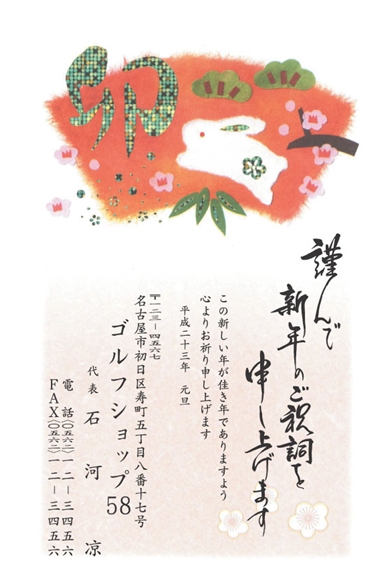 卯
謹んで
新年のご祝詞を
申し上げます
この新しい年が佳き年でありますよう
心よりお祈り申し上げます
平成二十三年 元旦
〒一二三-四五六七
名古屋市初日区寿町五丁目八番十七号
ゴルフショップ58
代表 石河 凉
電話(〇五六二)一二-三四五六
FAX(〇五六二)一二-三四五六